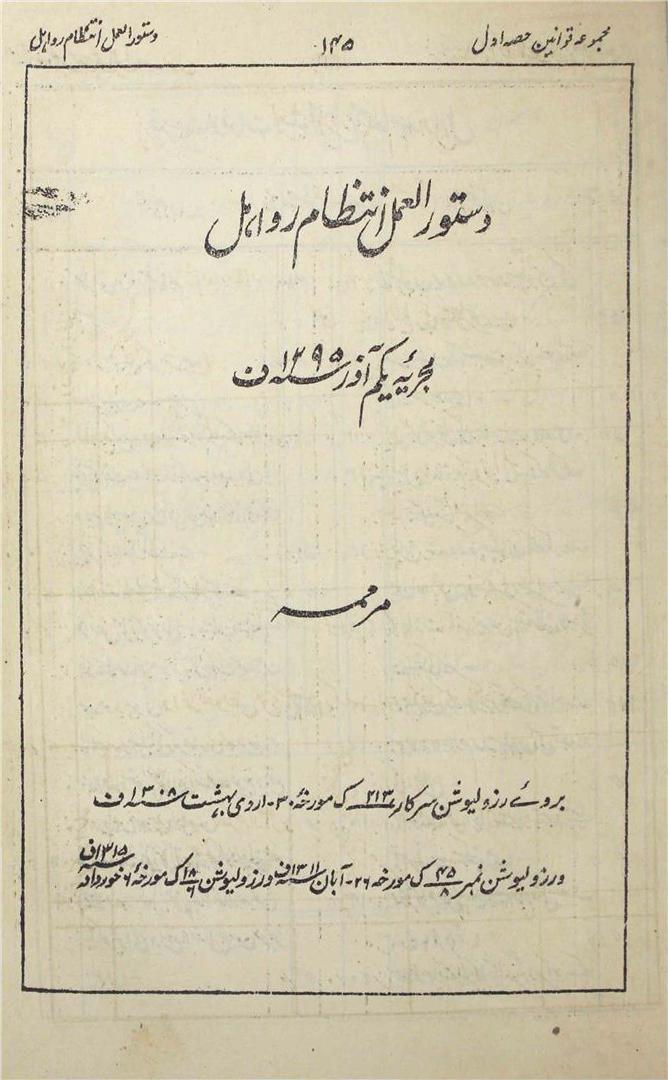 مجموعہ قوانین حصہ اول
۱۴۵
دستور العمل انتظام رواہل
دستور العمل انتظام رواہل
مجریہ یکم آذر سنہ ۱۲۹۵ ف
مرممہ
بروئے رزولیوشن سرکار ۲۱۳ ک مورخہ ۳۰۔ اردی بہشت سنہ ۱۳۰۸ ف
ورزولیوشن نمبر ۴۵/۸ ک مورخہ ۲۶۔ آبان سنہ ۱۳۱۱ ف ورزولیوشن ۱۸/۶ ک مورخہ ۶ خورداد سنہ ۱۳۱۵ ف